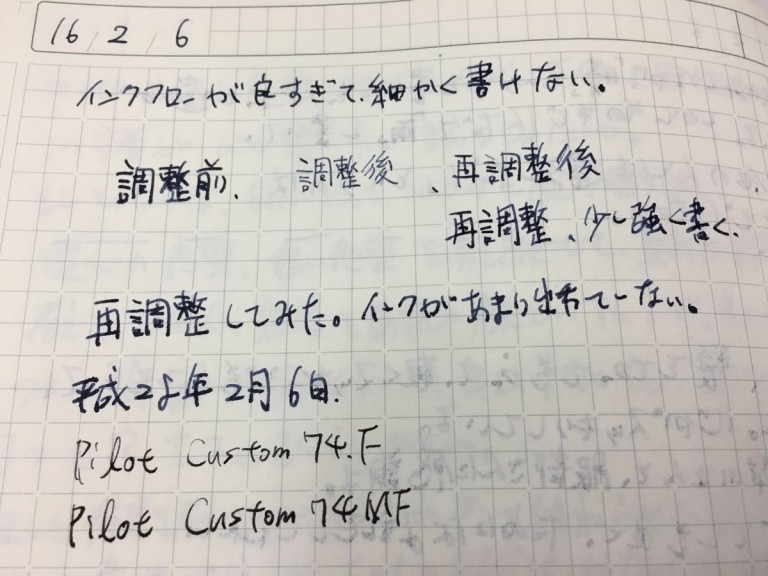 16 2 6
インクフローが良すぎて、細かく書けない。
調整前、 調整後 、再調整後
再調整、少し強く書く、
再調整してみた。インクがあまり出ていない。
平成28年2月6日.
Pilot Custom 74.F
Pilot Custom 74 MF